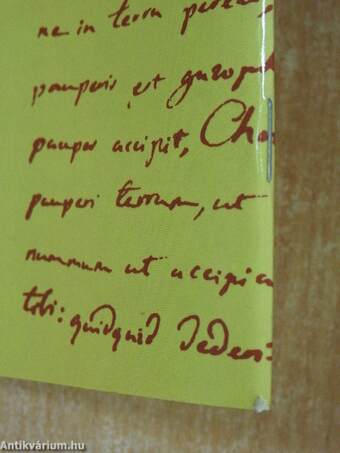 ne in terra
pauperis et
pauper accipit,
pauperi terram, ut
nummum ut accipia
tibi: quidquid dederi
Antikvárium.hu